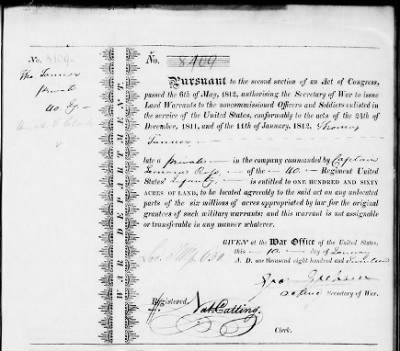 No. 8409.
Tho Tannor
private
40 Rg
No. 8409
Pursuant to the second section of an Act of Congress,
passed the 6th of May, 1812, authorising the Secretary of War to issue
Land Warrants to the noncommissioned Officers and Soldiers enlisted in
the service of the United States, conformably to the acts of the 24th of
December, 1811, and of the 11th of January, 1812, Thomas
Tannor
late a private in the company commanded by Captain
Ross of the 40 Regiment United
States' Infantry is entitled to ONE HUNDRED AND SIXTY
ACRES OF LAND, to be located agreeably to the said act on any unlocated
parts of the six millions of acres appropriated by law for the original
grantees of such military warrants; and this warrant is not assignable
or transferable in any manner whatever.
GIVEN at the War Office of the United States,
this 10 day of
A. D. one thousand eight hundred and
Secretary of War.
Registered
Nat Cutting
Clerk.
WAR DEPARTMENT.